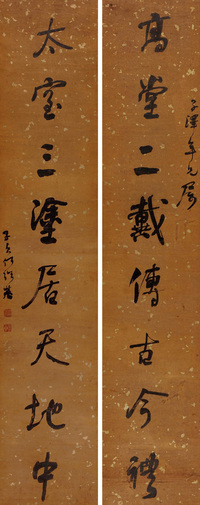 子澤年兄屬
高堂二戴傳古今禮
太室三塗居天地中
子貞何紹基